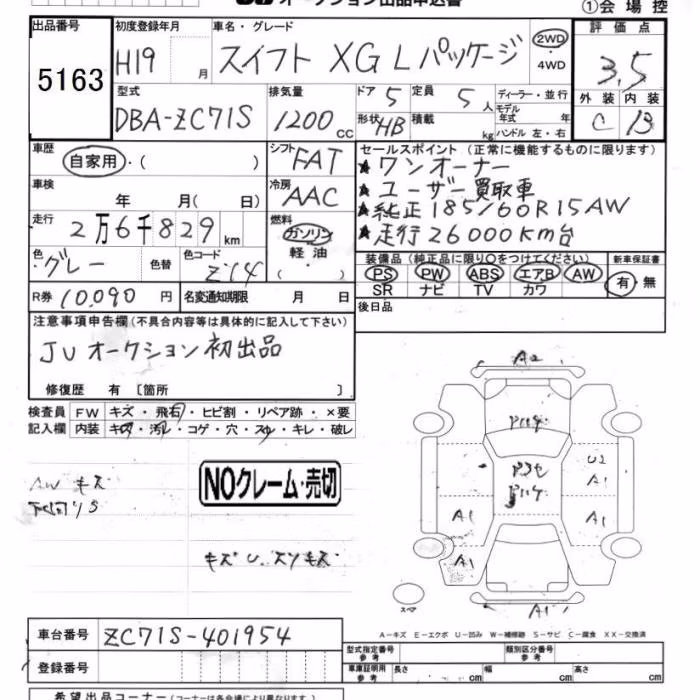 オークション出品申込書
①会場控
出品番号
5163
初度登録年月
H19 月
車名・グレード
スイフト XG Lパッケージ
2WD
4WD
評価点
3.5
外装 内装
C B
型式
DBA-ZC71S
排気量
1200 cc
ドア 5
形状 HB
定員 5 人
積載 kg
ディーラー・並行
モデル年式 年
ハンドル 左・右
車歴
自家用・( )
シフト
FAT
セールスポイント(正常に機能するものに限ります)
★ワンオーナー
★ユーザー買取車
★純正185/60R15AW
★走行26000Km台
車検
年 月( 日)
冷房
AAC
走行
2万6千829km
燃料
ガソリン
軽油
( )
色
グレー
色替
色コード
Z14
装備品(純正品に限り○をつけてください)
PS PW ABS エアB AW
SR ナビ TV カワ
新車保証書
有・無
R券 10,090 円
名変通知期限 月 日
後日品
注意事項申告欄(不具合内容等は具体的に記入して下さい)
JUオークション初出品
修復歴 有 〔箇所 〕
検査員
記入欄
FW キズ・飛石・ヒビ割・リペア跡・×要
内装 キズ・汚レ・コゲ・穴・スレ・キレ・破レ
AW キズ
NOクレーム・売切
キズ U
A2
U2
A1
A1
A1
A1
A1
スペア
A-キズ E-エクボ U-凹み W-補修跡 S-サビ C-腐食 XX-交換済
車台番号
ZC71S-401954
登録番号
型式指定番号
参考
類別区分番号
参考
車庫証明用
参考
長さ cm 幅 cm 高さ cm
希望出品コーナー(コーナーは各会場により異なります)